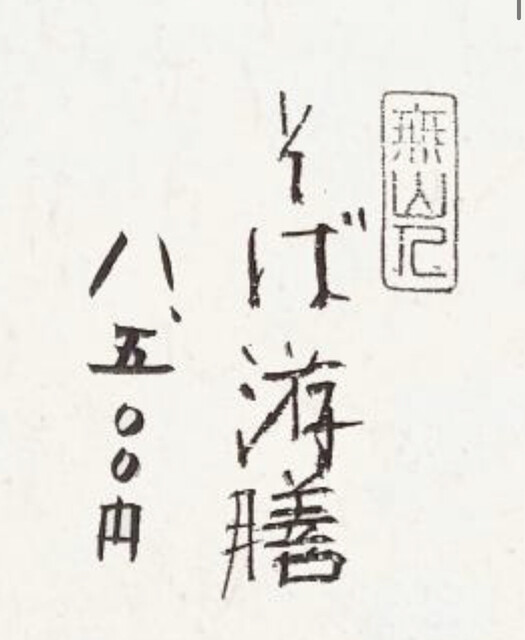 無山人
そば游膳
八、五〇〇円